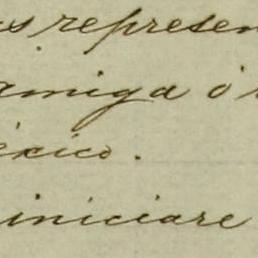 us represen
amiga ó
éxico.
iniciare